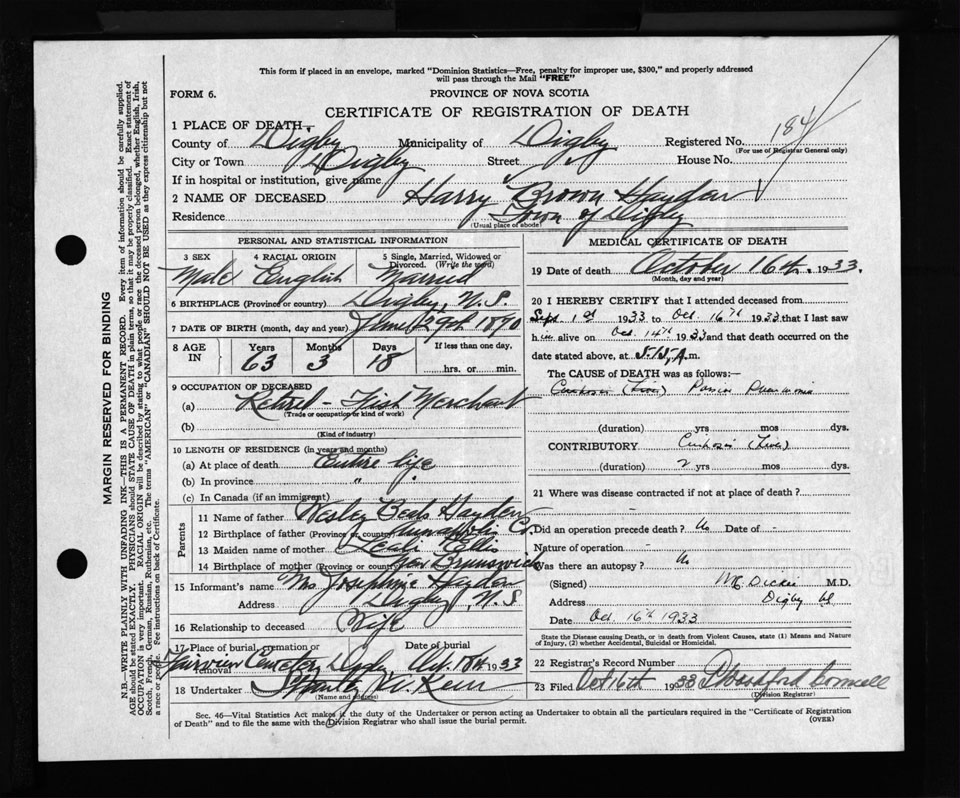 This form if placed in an envelope, marked "Dominion Statistics—Free, penalty for improper use, $300," and properly addressed
will pass through the Mail "FREE"
FORM 6. PROVINCE OF NOVA SCOTIA
CERTIFICATE OF REGISTRATION OF DEATH
184
1 PLACE OF DEATH—
County of Digby Municipality of Digby Registered No.
(For use of Registrar General only)
City or Town Digby Street House No.
If in hospital or institution, give name
2 NAME OF DECEASED Harry Brown Hayden
Residence Town of Digby
(Usual place of abode)
PERSONAL AND STATISTICAL INFORMATION
3 SEX 4 RACIAL ORIGIN 5 Single, Married, Widowed or
Divorced. (Write the word)
Male English Married
6 BIRTHPLACE (Province or country) Digby, N.S.
7 DATE OF BIRTH (month, day and year) June 29th 1870
8 AGE IN Years Months Days If less than one day,
63 3 18 hrs. or min.
9 OCCUPATION OF DECEASED
(a) Retired - Fish Merchant
(Trade or occupation or kind of work)
(b)
(Kind of industry)
10 LENGTH OF RESIDENCE (in years and months)
(a) At place of death Entire life
(b) In province "
(c) In Canada (if an immigrant)
Parents
11 Name of father Wesley Beals Hayden
12 Birthplace of father (Province or country) Annapolis Co.
13 Maiden name of mother Leah Ellis
14 Birthplace of mother (Province or country) New Brunswick
15 Informant's name Mrs Josephine Hayden
Address Digby, N.S
16 Relationship to deceased Wife
17 Place of burial, cremation or removal Date of burial
Cemetery Digby Oct. 18th 1933
18 Undertaker
(Name and address)
MEDICAL CERTIFICATE OF DEATH
19 Date of death October 16th. 1933.
(Month, day and year)
20 I HEREBY CERTIFY that I attended deceased from
Sept 1st 1933 to Oct. 16th 1933 that I last saw
him alive on Oct. 14th 1933 and that death occurred on the
date stated above, at A.m.
The CAUSE of DEATH was as follows:—
Cirrhosis (Liver) Pneumonia
(duration) yrs mos dys.
CONTRIBUTORY Cirrhosis (Liver)
(duration) 2 yrs mos dys.
21 Where was disease contracted if not at place of death?
Did an operation precede death? No Date of -
Nature of operation -
Was there an autopsy? No
(Signed) Dickie M.D.
Address Digby
Date Oct. 16th 1933
State the Disease causing Death, or in death from Violent Causes, state (1) Means and Nature
of Injury, (2) whether Accidental, Suicidal or Homicidal.
22 Registrar's Record Number
23 Filed Oct 16th 1933
(Division Registrar)
Sec. 46—Vital Statistics Act makes it the duty of the Undertaker or person acting as Undertaker to obtain all the particulars required in the "Certificate of Registration
of Death" and to file the same with the Division Registrar who shall issue the burial permit.
(OVER)
MARGIN RESERVED FOR BINDING
N.B.—WRITE PLAINLY WITH UNFADING INK—THIS IS A PERMANENT RECORD. Every item of information should be carefully supplied.
AGE should be stated EXACTLY. PHYSICIANS should STATE CAUSE OF DEATH in plain terms, so that it may be properly classified. Exact statement of
OCCUPATION is very important. RACIAL ORIGIN will be described by stating to what people or race the deceased person belonged, whether English, Irish,
Scotch, French, German, Russian, Ruthenian, etc. The terms "AMERICAN" or "CANADIAN" SHOULD NOT BE USED as they express citizenship but not
a race or people. Fee instructions on back of Certificate.